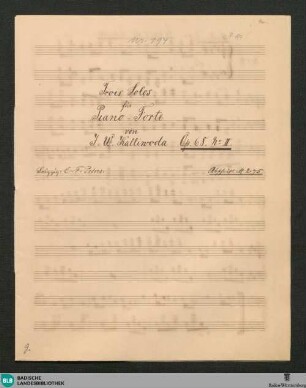 Trois Solos
für
Piano-Forte
von
J. W. Kalliwoda Op. 68. No. II
Leipzig: C. F. Peters.
9.
BLB BADISCHE
LANDESBIBLIOTHEK
Baden-Württemberg